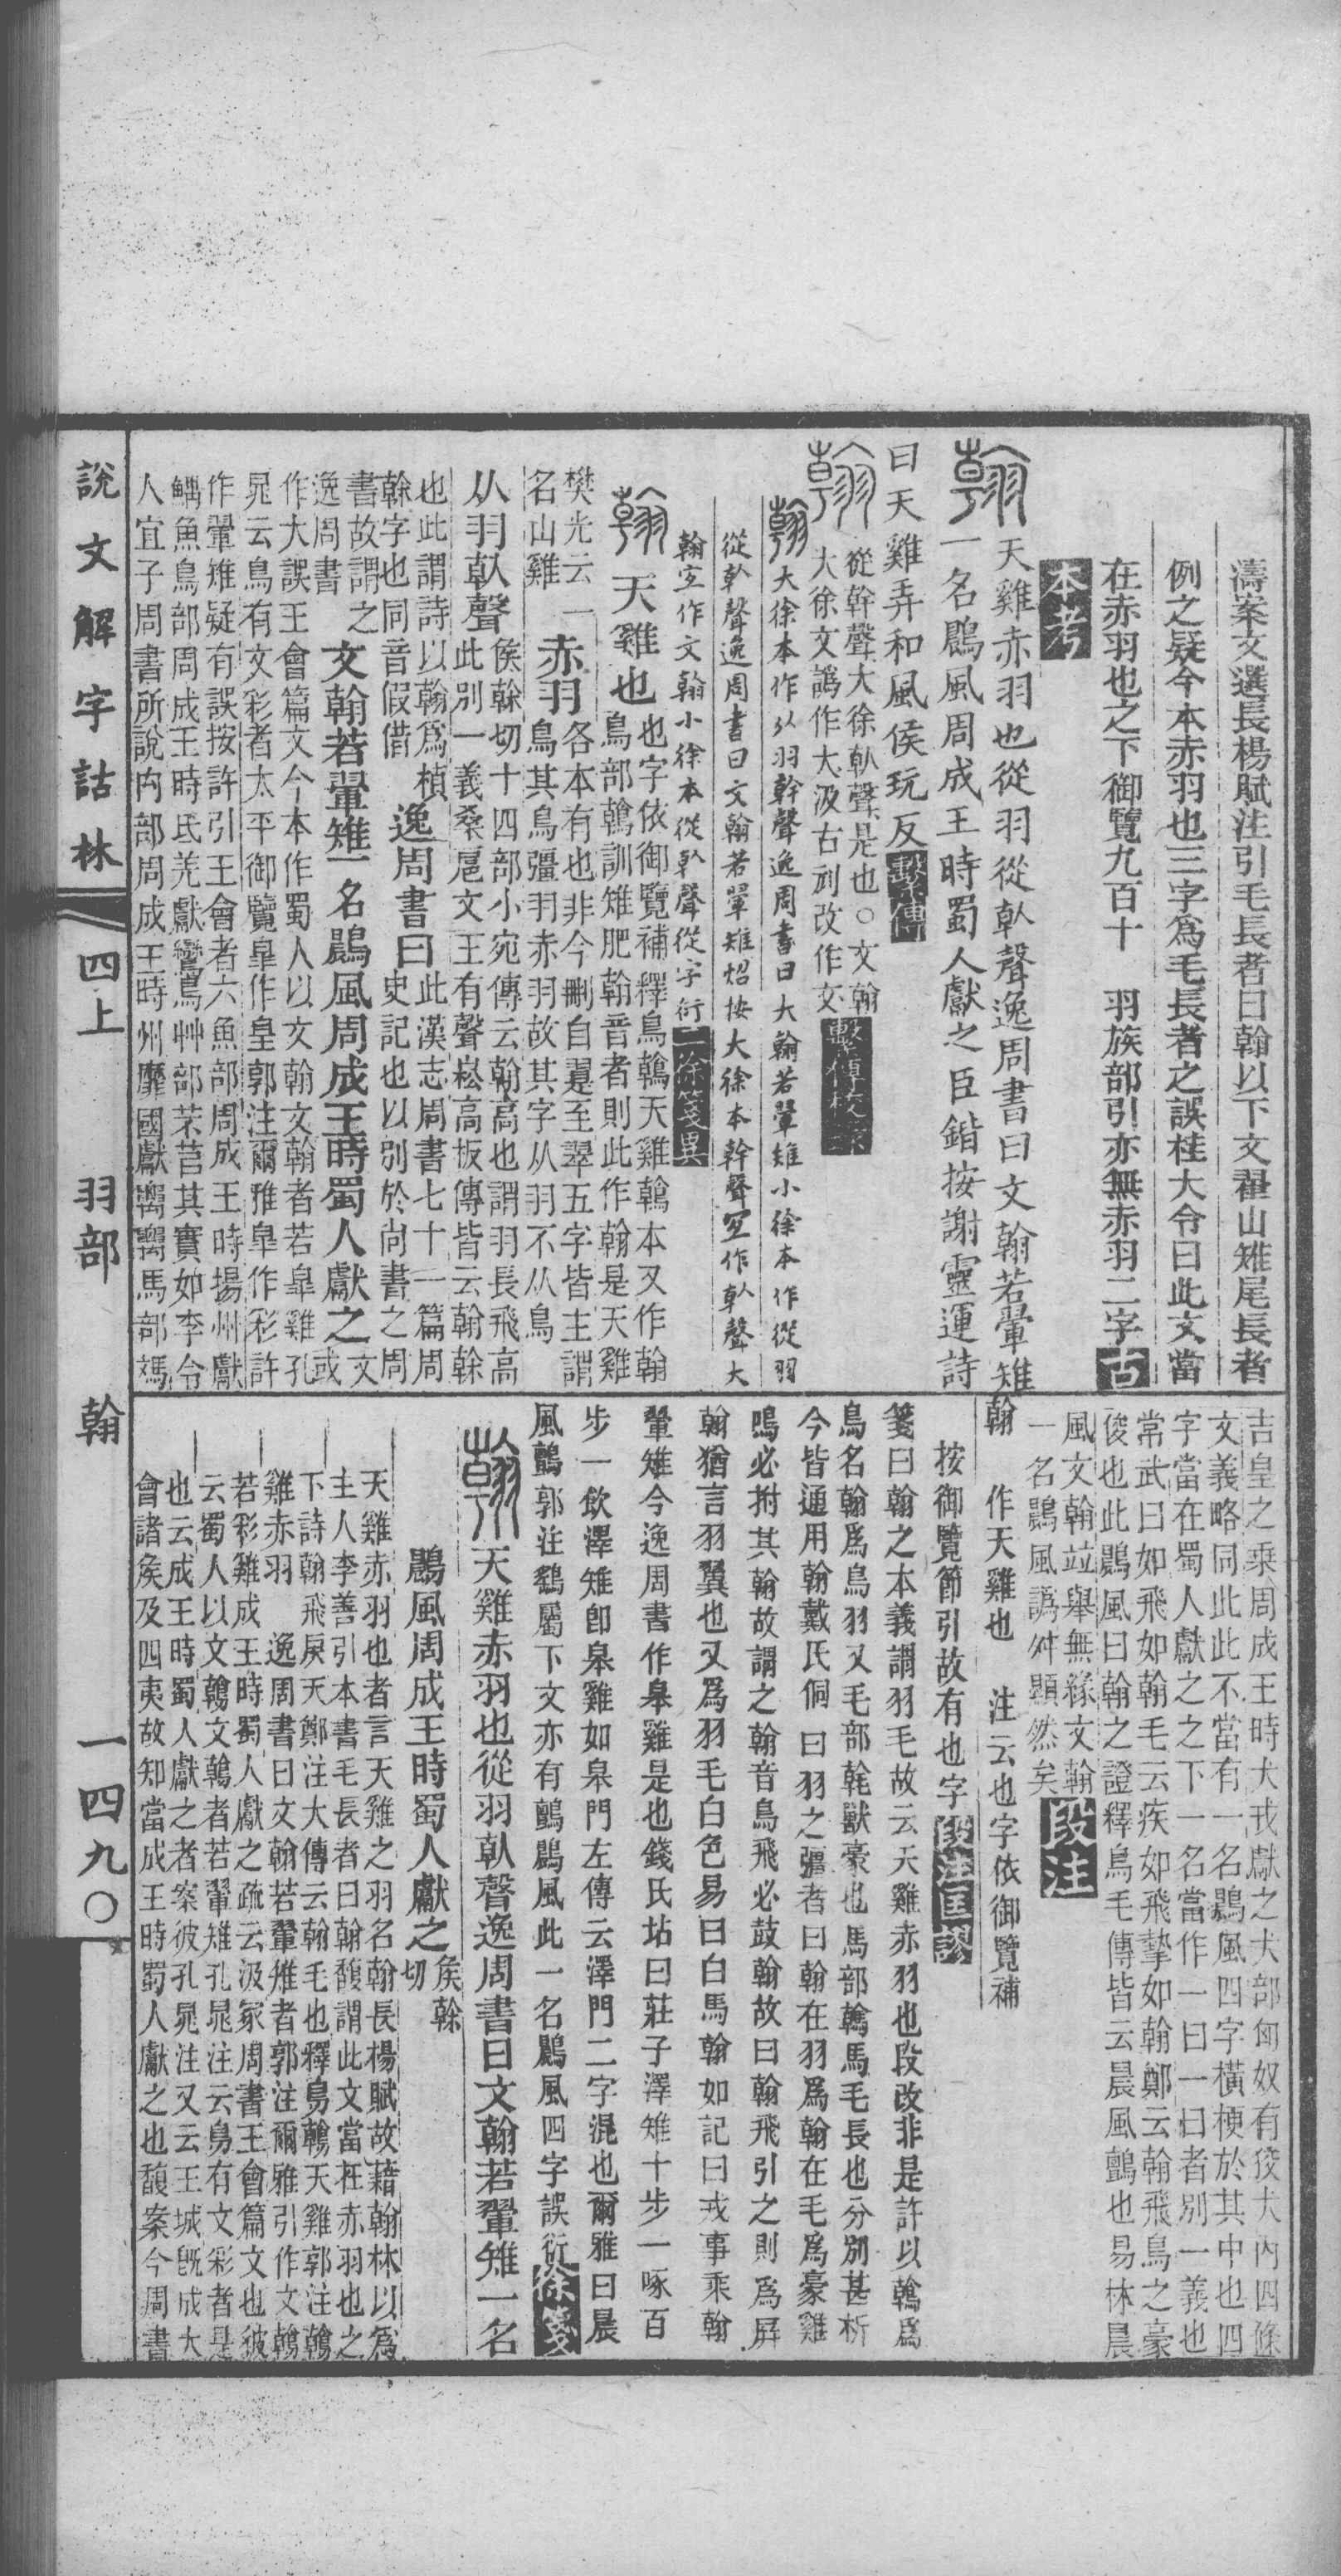 濤案文選長楊賦注引毛長者曰翰以下文翟山雉尾長者
例之疑今本赤羽也三字爲毛長者之誤桂大令曰此文當
在赤羽也之下御覽九百十　羽族部引亦無赤羽二字古
本考
翰天雞赤羽也從羽從倝聲逸周書曰文翰若翬雉
一名鷐風周成王時蜀人獻之臣鍇按謝靈運詩
曰天雞弄和風侯玩反繫傳
翰從幹聲大徐倝聲是也〇文翰
大徐文譌作大汲古剜改作文繫傳校录
翰大徐本作从羽幹聲逸周書曰大翰若翬雉小徐本作從羽
從倝聲逸周書曰文翰若翬雉炤按大徐本幹聲宜作倝聲大
翰宜作文翰小徐本從倝聲從字衍二徐箋異
翰天雞也
也字依御覽補釋鳥鶾天雞鶾本又作翰
鳥部鶾訓雉肥翰音者則此作翰是天雞
樊光云一
名山雞
赤羽
各本有也非今刪自翨至翠五字皆主謂
鳥其鳥彊羽赤羽故其字从羽不从鳥
从羽倝聲
侯榦切十四部小宛傳云翰高也謂羽長飛高
此別一義桑扈文王有聲崧高板傳皆云翰榦
也此謂詩以翰爲楨
榦字也同音假借
逸周書曰
此漢志周書七十一篇周
史記也以別於尚書之周
書故謂之
逸周書
文翰若翬雉一名鷐風周成王時蜀人獻之
文
或
作大誤王會篇文今本作蜀人以文翰文翰者若皐雞孔
晁云鳥有文彩者太平御覽皐作皇郭注爾雅皐作彩許
作翬雉疑有誤按許引王會者六魚部周成王時揚州獻
鰅魚鳥部周成王時氐羌獻鸞鳥艸部芣苢其實如李令
人宜子周書所說禸部周成王時州靡國獻𥝋𥝋馬部䮘
吉皇之乘周成王時犬戎獻之犬部匈奴有狡犬內四條
文義略同此此不當有一名鷐風四字橫梗於其中也四
字當在蜀人獻之之下一名當作一曰一曰者別一義也
常武曰如飛如翰毛云疾如飛摯如翰鄭云翰飛鳥之豪
俊也此鷐風曰翰之證釋鳥毛傳皆云晨風鸇也易林晨
風文翰竝舉無緣文翰
一名鷐風譌舛顯然矣段注
翰　作天雞也　注云也字依御覽補
按御覽節引故有也字段注匡謬
箋曰翰之本義謂羽毛故云天雞赤羽也段改非是許以鶾爲
鳥名翰爲鳥羽又毛部毨獸豪也馬部鶾馬毛長也分別甚析
今皆通用翰戴氏侗曰羽之彊者曰翰在羽爲翰在毛爲豪雞
鳴必拊其翰故謂之翰音鳥飛必鼓翰故曰翰飛引之則爲屏
翰猶言羽翼也又爲羽毛白色易曰白馬翰如記曰戎事乘翰
翬雉今逸周書作皋雞是也錢氏坫曰莊子澤雉十步一啄百
步一飲澤雉卽皋雞如皋門左傳云澤門二字混也爾雅曰晨
風鸇郭注鷂屬下文亦有鸇鷐風此一名鷐風四字誤衍徐箋
翰天雞赤羽也從羽倝聲逸周書曰文翰若翬雉一名
鷐風周成王時蜀人獻之
侯榦
切
天雞赤羽也者言天雞之羽名翰長楊賦故藉翰林以爲
主人李善引本書毛長者曰翰馥謂此文當在赤羽也之
下詩翰飛戾天鄭注大傳云翰毛也釋鳥鶾天雞郭注鶾
雞赤羽　逸周書曰文翰若翬雉者郭注爾雅引作文鶾
若彩雞成王時蜀人獻之疏云汲冢周書王會篇文也彼
云蜀人以文鶾文鶾者若翬雉孔晁注云鳥有文彩者是
也云成王時蜀人獻之者案彼孔晁注又云王城旣成大
會諸矦及四夷故知當成王時蜀人獻之也馥案今周書
說文解字詁林　四上　羽部　翰　一四九〇